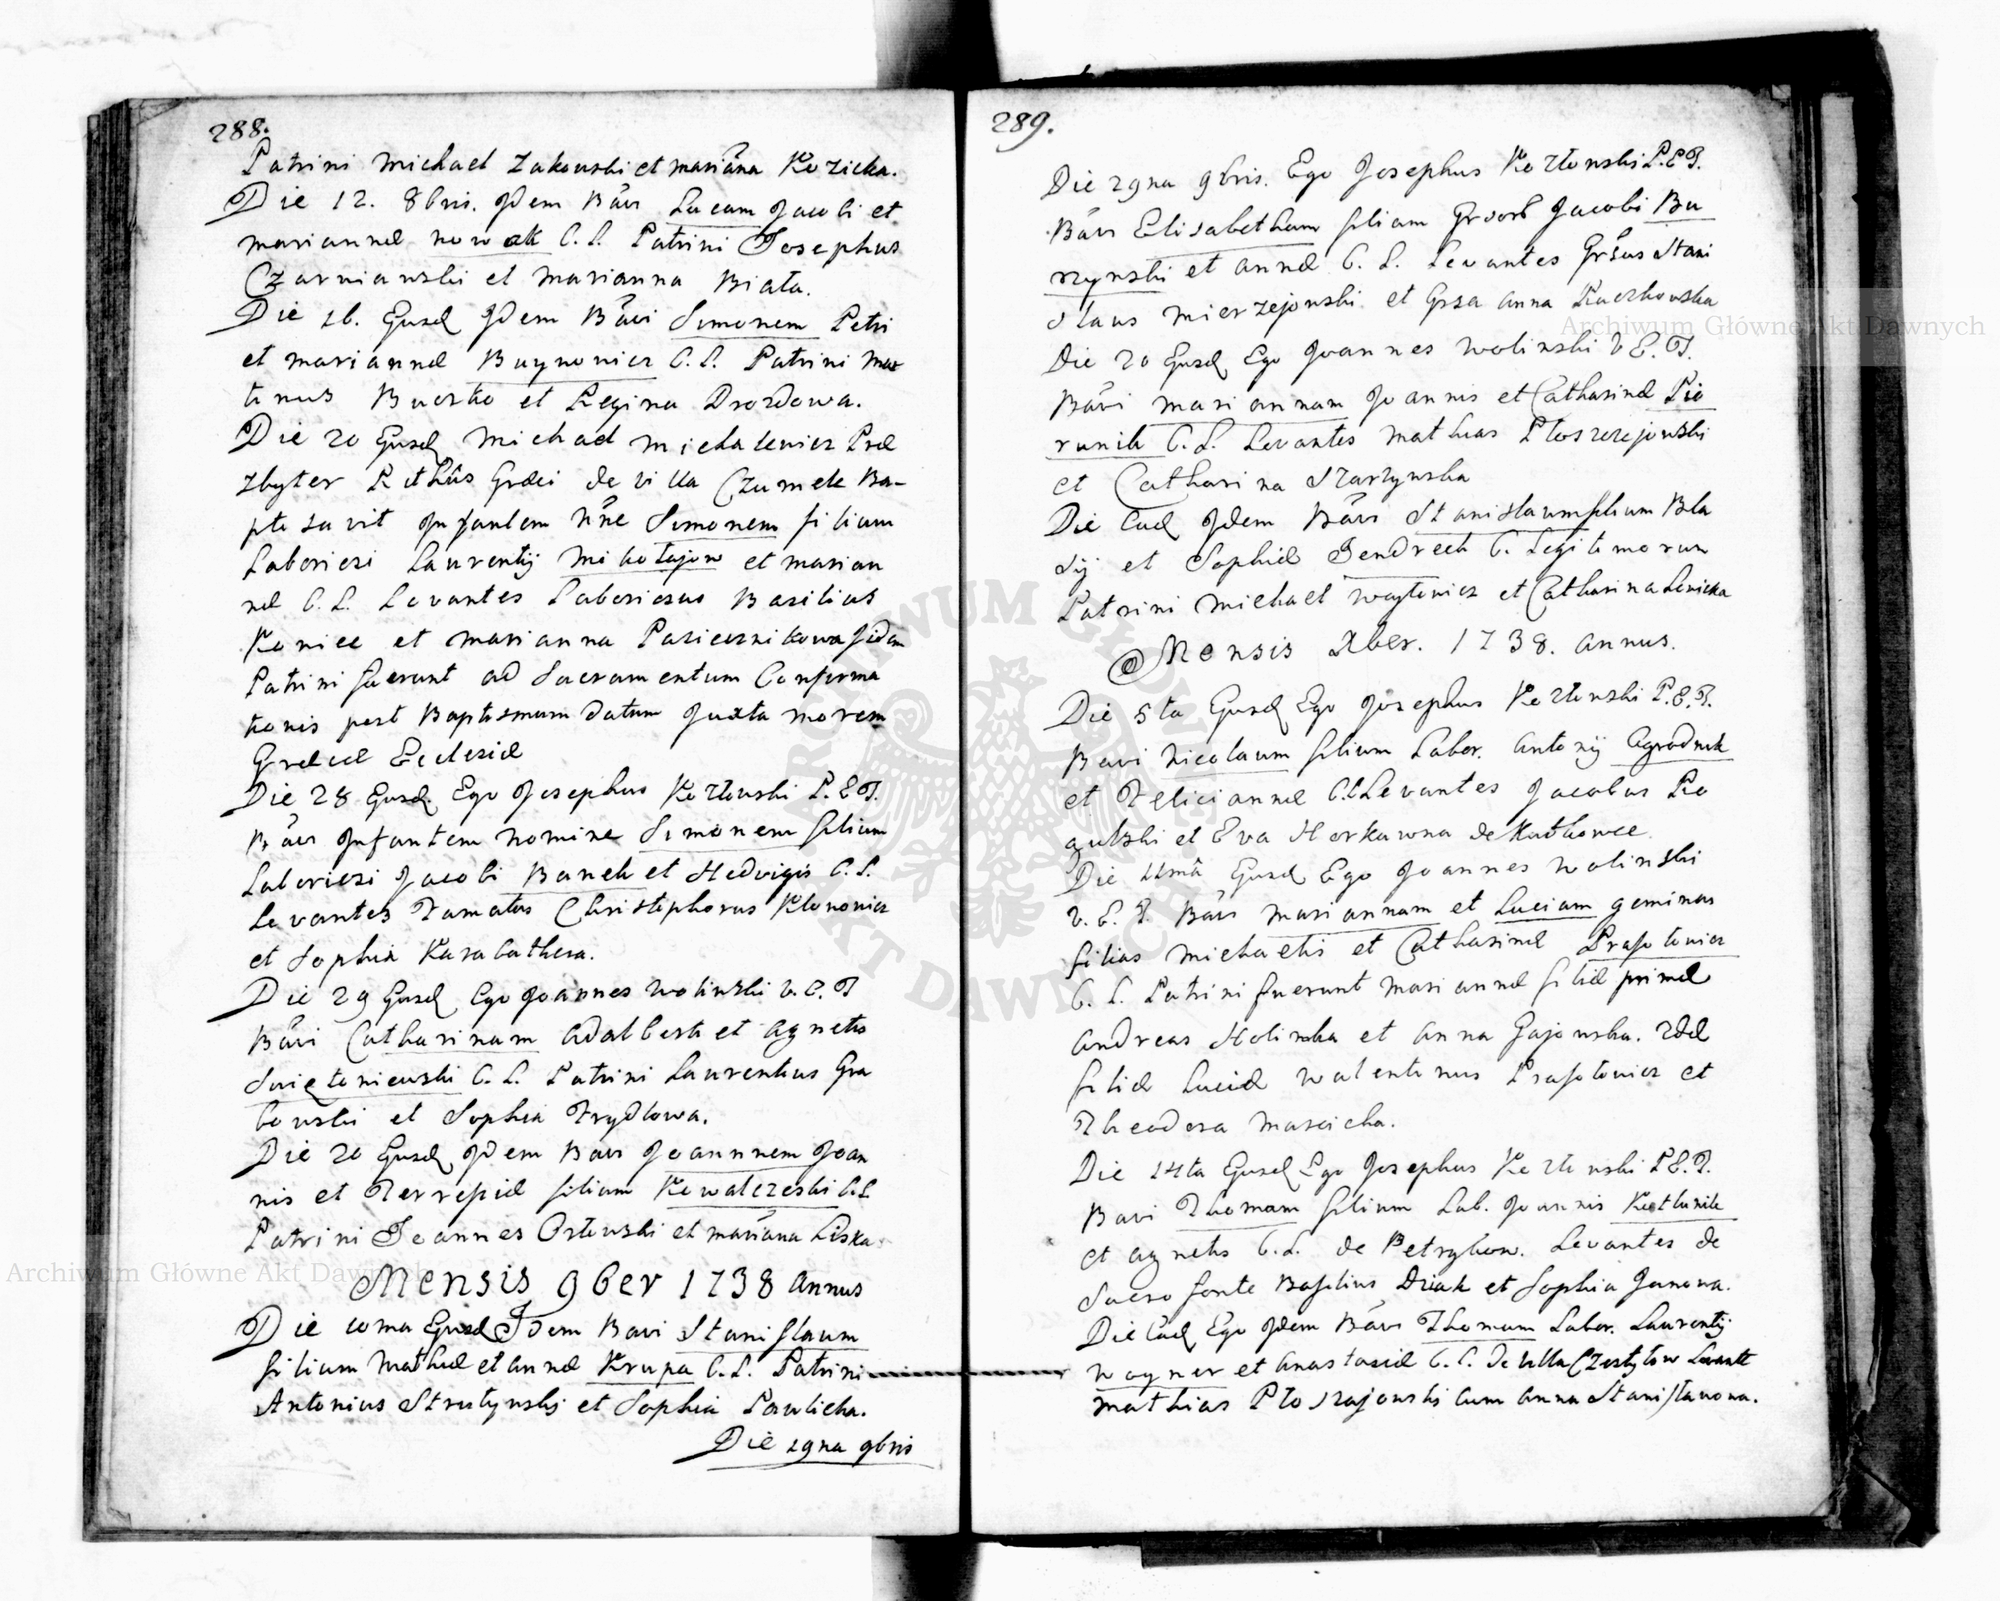 288.
Patrini Michael Zakowski et Mariãna Kozicka.
Die 12. 8bris. Idem Bãvi Lucam Jacobi et
Mariannæ Nowak C. L. Patrini Josephus
Czarniawski et Marianna Biała.
Die 16. Ejusd Idem Bãvi Simonem Petri
et Mariannæ Buynowicz C. L. Patrini Mar
tinus Buczko et Regina Drozdowa.
Die 20 Ejusd Michael Michalewicz Præ
zbyter Rithûs Græci de villa Czumek Ba-
ptisavit Infantem Nñe Simonem filium
Laboriosi Laurentij Mikołajow et Marian
næ C. L. Levantes Laboriosus Basilius
Koniec et Marianna Pasiecznikowa Iidem
Patrini fuerunt ad Sacramentum Confirma
tionis post Baptismum datum Juxta morem
Græcæ Eclesiæ
Die 28 Ejusd. Ego Josephus Kozłowski P. E. T.
Bãvi Infantem nomine Simonem filium
Laboriosi Jacobi Banek et Hedvigis C. L.
Levantes Famatus Christophorus Klonowicz
et Sophia Karabathera.
Die 29 Ejusd Ego Joannes Wolinski V. E. T
Bãvi Catharinam Adalberti et Agnetis
Swiętoniewski C. L. Patrini Laurentius Gra
bowski et Sophia Frydlowa.
Die 20 Ejusd Idem Bavi Joannnem Joan
nis et Terrepiæ filium Kowalczeski C. L
Patrini Joannes Orłowski et Mariãna Liska.
Mensis 9ber 1738 Annus
Die 10ma Ejusd Idem Bavi Stanislaum
filium Mathiæ et Annæ Krupa C. L. Patrini
Antonius Strutynskj et Sophia Pawlicha.
Die 29na 9bris
289.
Die 29na 9bris. Ego Josephus Kozłowski P. E T.
Bãvi Elisabetham filiam Grosor Jacobi Bu
rzynski et Annæ C. L. Levantes Grõsus Stani
slaus Mierzejowski et Grsa Anna Kaczkowska
Die 20 Ejusd Ego Joannes Wolinski V E. T.
Bãvi Mariannam Joannis et Catharinæ Pio
runik C. L. Levantes Mathias Ploszczejowski
et Catharina Starzynska
Die Ead Idem Bãvi Stanislaum filium Bla
sij et Sophiæ Jendrech C. Legitimorum
Patrini Michael Woytowicz et Catharina Lewicka
Mensis Xber. 1738. Annus.
Die 5ta Ejusd Ego Josephus Kozłowski P. E. T.
Bavi Nicolaum filium Labor. Antonij Ogrodnik
et Feliciannæ C. L Levantes Jacobus Ro
gulski et Eva Horkawna de Kutkowce.
Die 11mâ Ejusd Ego Joannes Wolinski
V. E. T. Bãvi Mariannam et Luciam geminas
filias Michaelis et Catharinæ Prasołowicz
C. L. Patrini fuerunt Mariannæ filiæ primæ
Andreas Holinska et Anna Gajowska. 2dæ
filiæ Luciæ Walentinus Prasołowicz et
Theodora Mascicha.
Die 14ta Ejusd Ego Josephus Kozłowski P E. T.
Bavi Thomam filium Lab. Joannis Kotłunik
et Agnetis C. L. de Petrykow. Levantes de
Sacro fonte Basilius Dziak et Sophia Janowa.
Die Ead Ego Idem Bãvi Thomam Labor. Laurentij
Woyner et Anastasiæ C. L. de Villa Czystyłow Levante
Mathias Płoszajowski cum Anna Stanisławowa.
Archiwum Główne Akt Dawnych
Archiwum Główne Akt Dawnych
ARCHIWUM GŁÓWNE AKT DAWNYCH